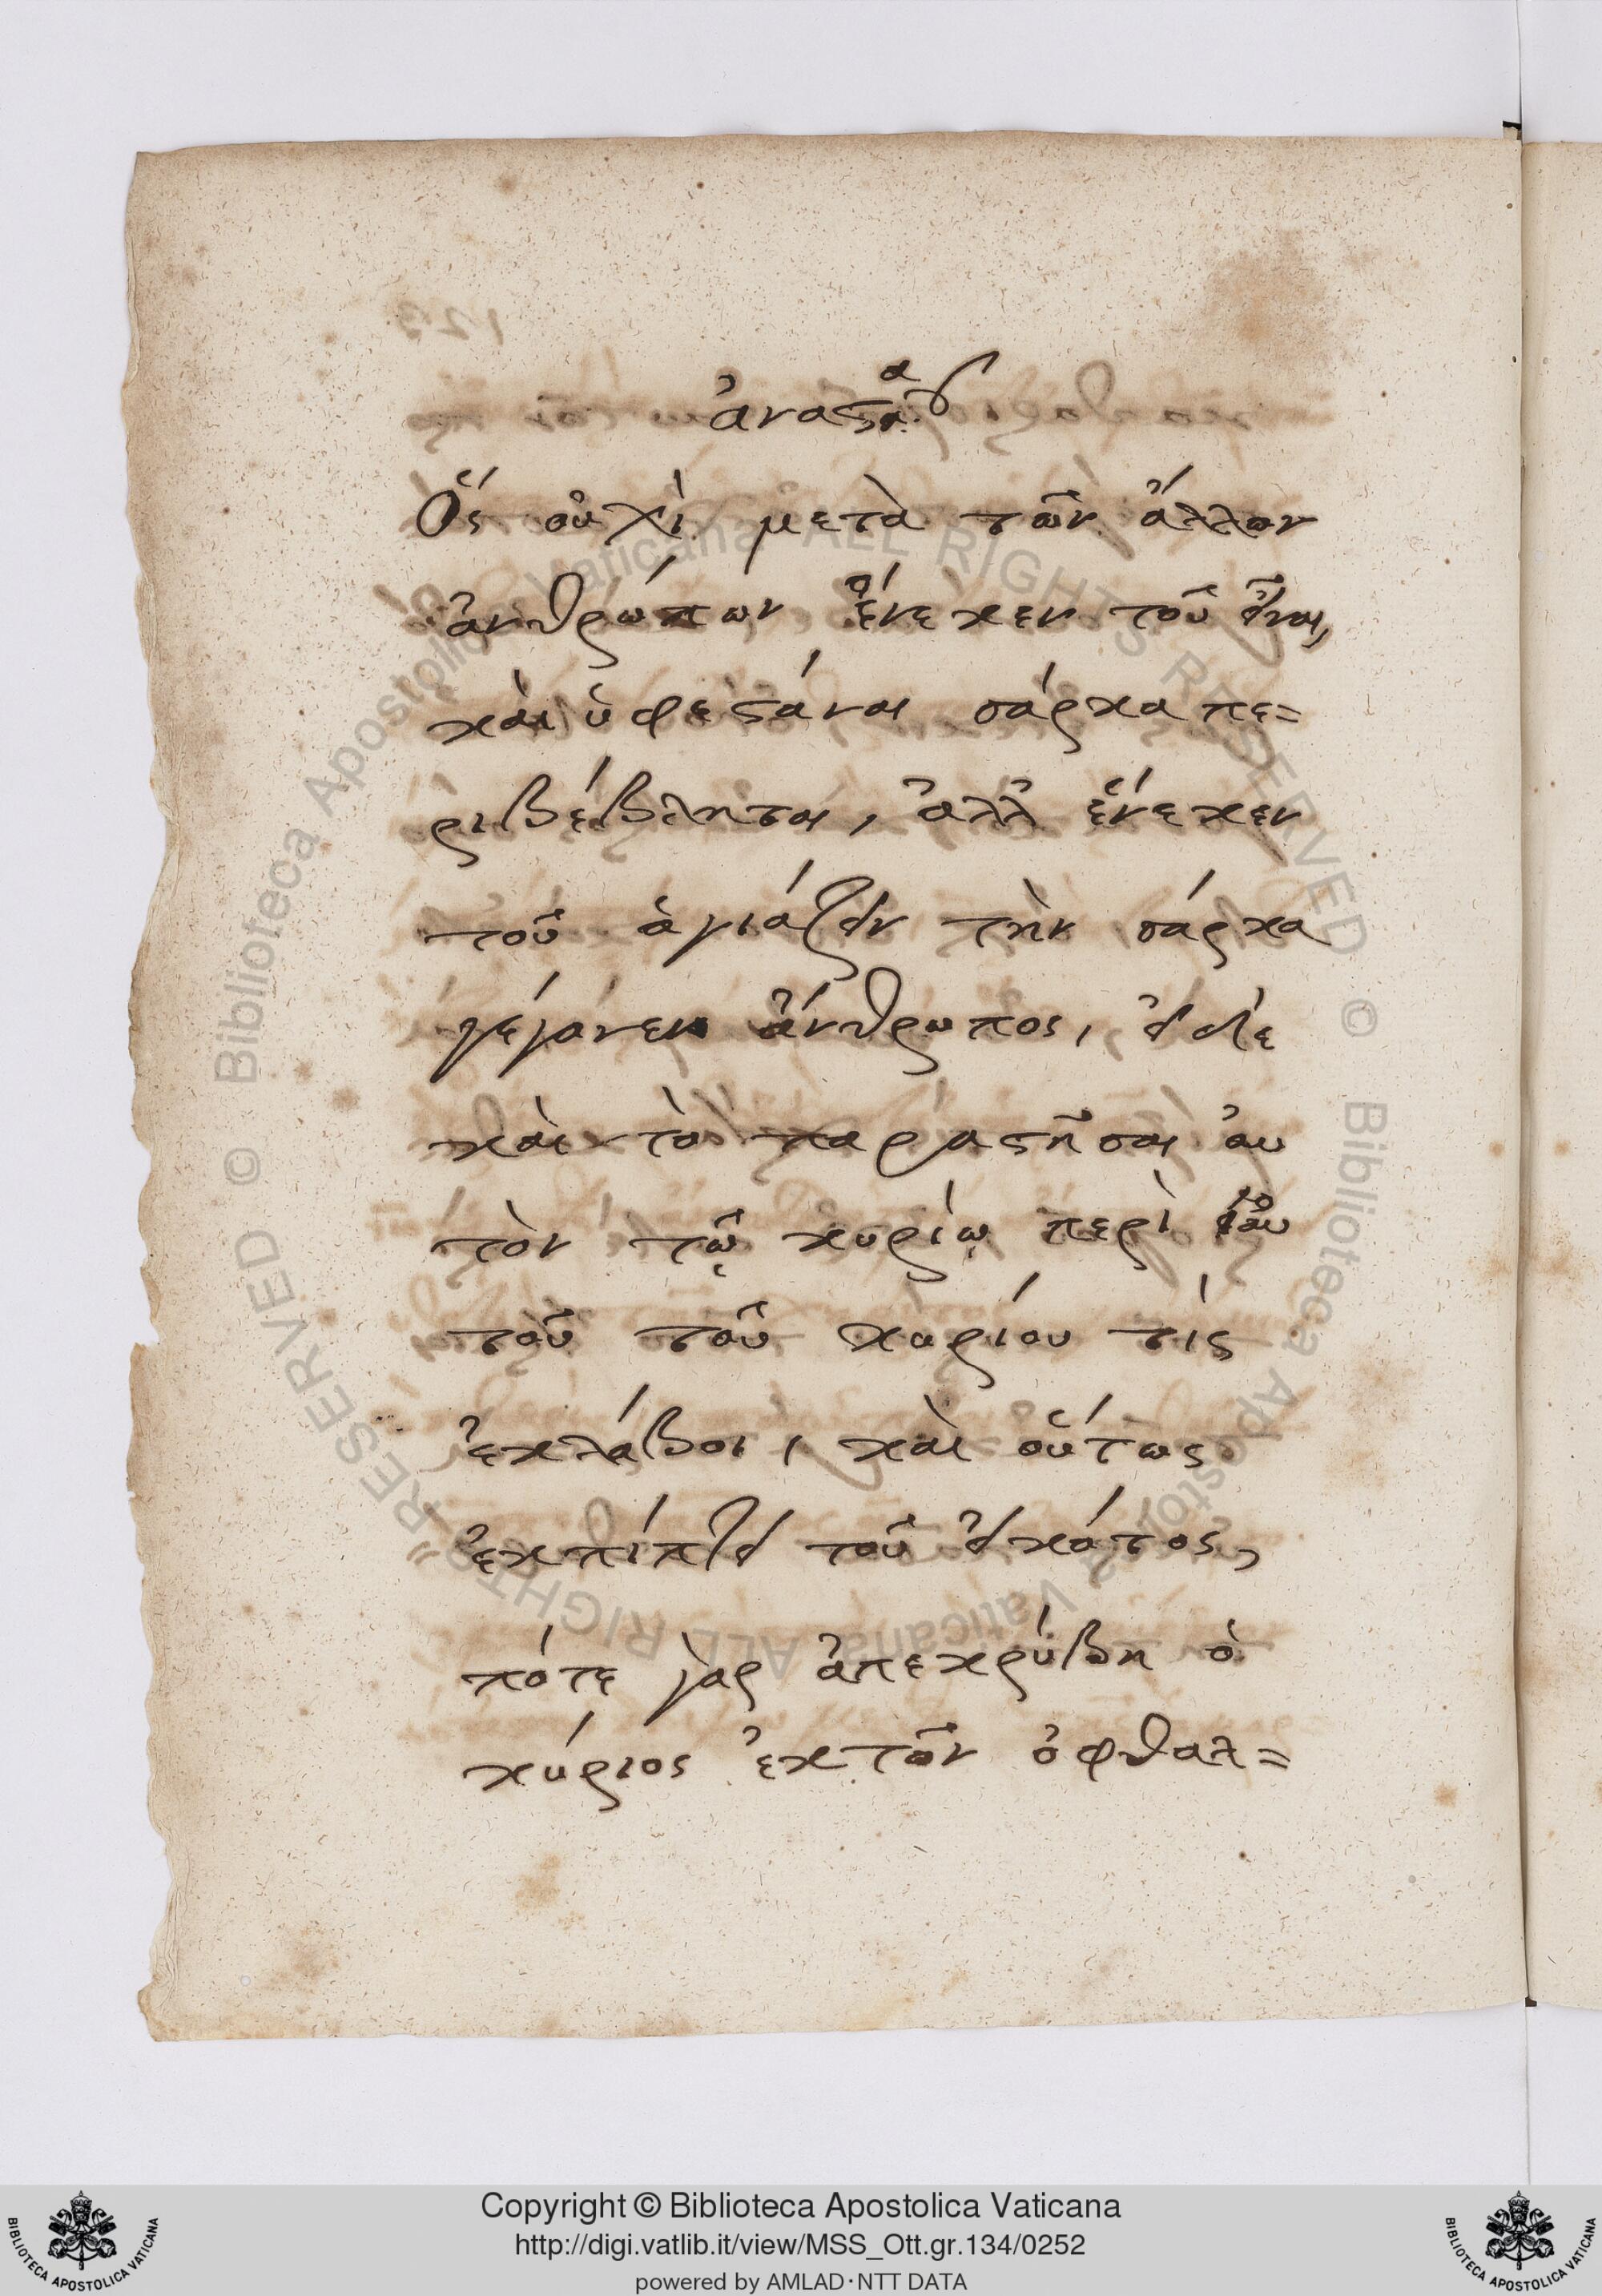 Ὅς οὐχὶ μετὰ τῶν ἄλλων
ἀνθρώπων ἕνεκεν τοῦ εἶναι,
καὶ ὑφεστάναι σάρκα πε=
ριβέβληται, ἀλλ ἕνεκεν
τοῦ ἁγιάζειν τὴν σάρκα
γέγονεν ἄνθρωπος, εἰ δέ
καὶ τὸ παραστῆσαι αὐ
τὸν τῷ κυρίῳ περὶ
τοῦ τοῦ κυρίου τίς
ἐκλάβοι, καὶ οὕτως
ἐκπίπτει τοῦ εἰκότος,
πότε γὰρ ἀπεκρύβη ὁ
κύριος ἐκ τῶν ὀφθαλ=
© Biblioteca Apostolica Vaticana ALL RIGHTS RESERVED © Biblioteca Apostolica Vaticana ALL RIGHTS RESERVED
Copyright © Biblioteca Apostolica Vaticana
http://digi.vatlib.it/view/MSS_Ott.gr.134/0252
powered by AMLAD·NTT DATA
BIBLIOTECA APOSTOLICA VATICANA
BIBLIOTECA APOSTOLICA VATICANA